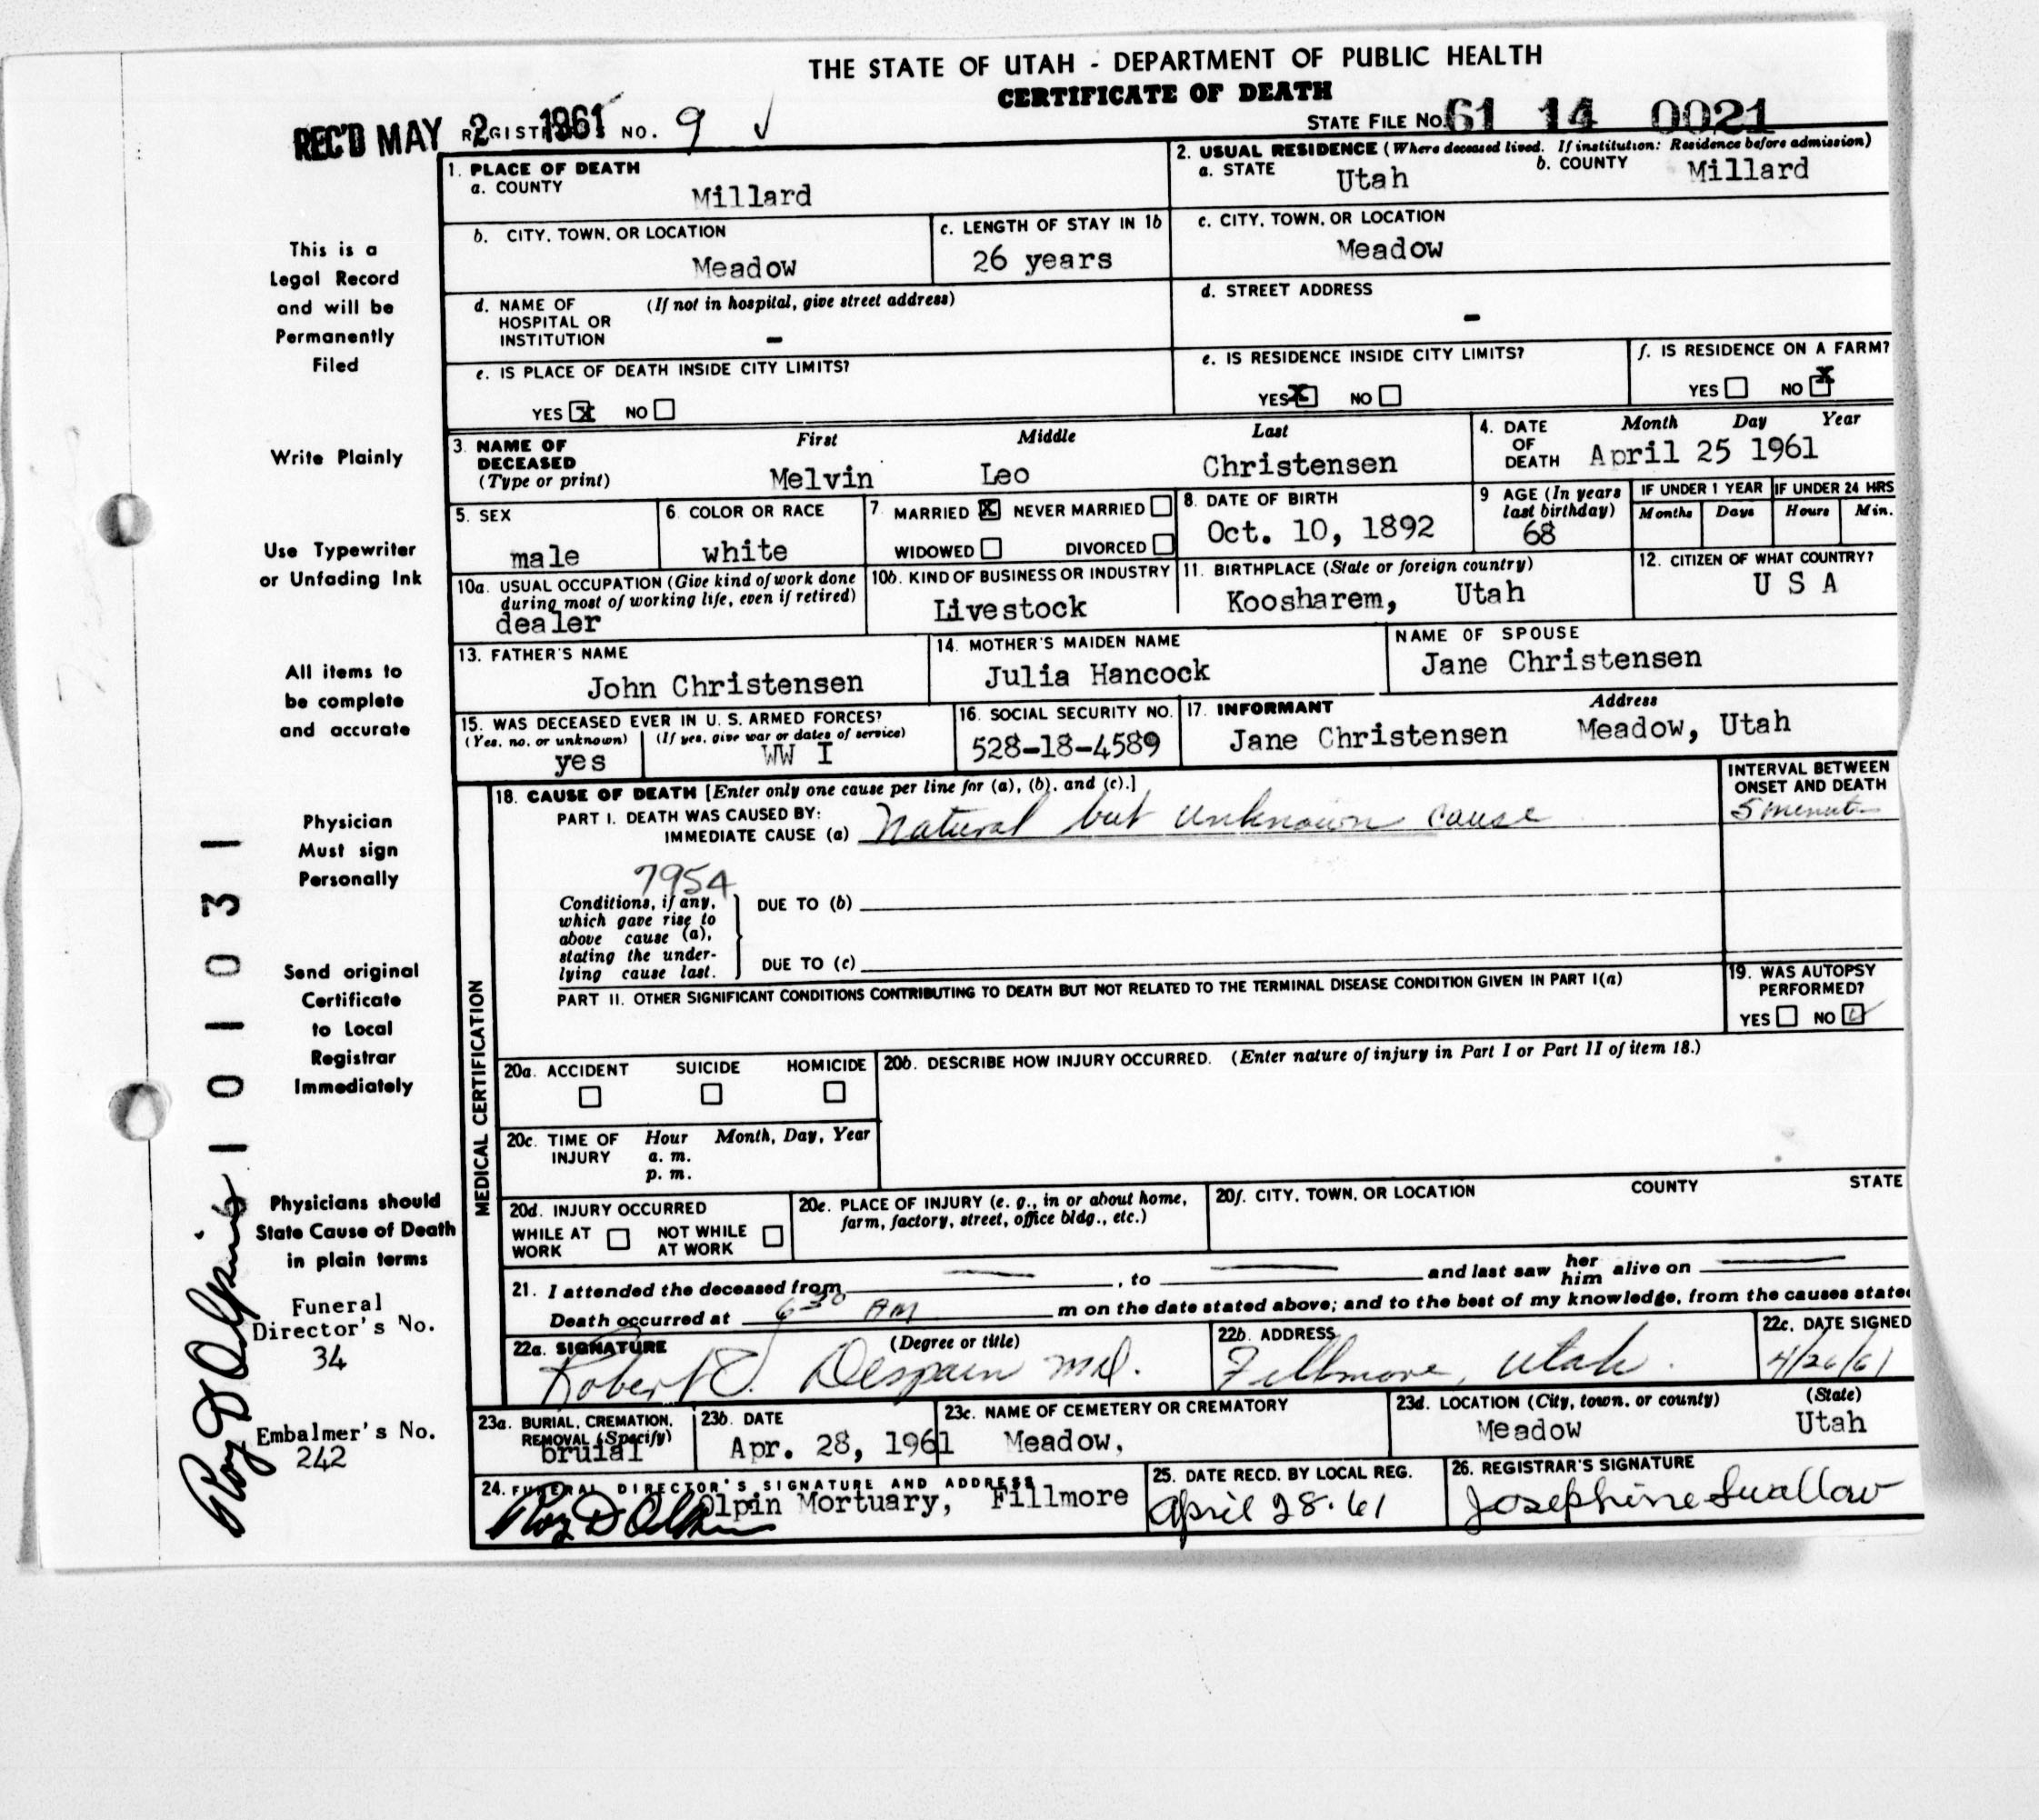 THE STATE OF UTAH - DEPARTMENT OF PUBLIC HEALTH
CERTIFICATE OF DEATH
REC'D MAY 2 1961 REGISTRAR'S NO. 9 STATE FILE NO. 61 14 0021
1. PLACE OF DEATH
a. COUNTY
Millard
2. USUAL RESIDENCE (Where deceased lived. If institution: Residence before admission)
a. STATE Utah b. COUNTY Millard
b. CITY, TOWN, OR LOCATION
Meadow
c. LENGTH OF STAY IN 1b
26 years
c. CITY, TOWN, OR LOCATION
Meadow
d. NAME OF (If not in hospital, give street address)
HOSPITAL OR
INSTITUTION -
d. STREET ADDRESS
-
e. IS PLACE OF DEATH INSIDE CITY LIMITS?
YES x NO
e. IS RESIDENCE INSIDE CITY LIMITS?
YES X NO
f. IS RESIDENCE ON A FARM?
YES NO X
3. NAME OF DECEASED (Type or print)
First Middle Last
Melvin Leo Christensen
4. DATE OF DEATH
Month Day Year
April 25 1961
5. SEX
male
6. COLOR OR RACE
white
7. MARRIED X NEVER MARRIED
WIDOWED DIVORCED
8. DATE OF BIRTH
Oct. 10, 1892
9 AGE (In years last birthday)
68
IF UNDER 1 YEAR IF UNDER 24 HRS
Months Days Hours Min.
10a. USUAL OCCUPATION (Give kind of work done
during most of working life, even if retired)
dealer
10b. KIND OF BUSINESS OR INDUSTRY
Livestock
11. BIRTHPLACE (State or foreign country)
Koosharem, Utah
12. CITIZEN OF WHAT COUNTRY?
U S A
13. FATHER'S NAME
John Christensen
14. MOTHER'S MAIDEN NAME
Julia Hancock
NAME OF SPOUSE
Jane Christensen
15. WAS DECEASED EVER IN U. S. ARMED FORCES?
(Yes, no, or unknown) (If yes, give war or dates of service)
yes WW I
16. SOCIAL SECURITY NO.
528-18-4589
17. INFORMANT Address
Jane Christensen Meadow, Utah
MEDICAL CERTIFICATION
18. CAUSE OF DEATH [Enter only one cause per line for (a), (b), and (c).]
PART I. DEATH WAS CAUSED BY:
IMMEDIATE CAUSE (a) Natural but unknown cause
INTERVAL BETWEEN
ONSET AND DEATH
5 minutes
7954
Conditions, if any,
which gave rise to
above cause (a),
stating the under-
lying cause last.
DUE TO (b)
DUE TO (c)
PART II. OTHER SIGNIFICANT CONDITIONS CONTRIBUTING TO DEATH BUT NOT RELATED TO THE TERMINAL DISEASE CONDITION GIVEN IN PART I(a)
19. WAS AUTOPSY
PERFORMED?
YES NO ✓
20a. ACCIDENT SUICIDE HOMICIDE
20b. DESCRIBE HOW INJURY OCCURRED. (Enter nature of injury in Part I or Part II of item 18.)
20c. TIME OF INJURY Hour Month, Day, Year
a. m.
p. m.
20d. INJURY OCCURRED
WHILE AT WORK NOT WHILE AT WORK
20e. PLACE OF INJURY (e. g., in or about home,
farm, factory, street, office bldg., etc.)
20f. CITY, TOWN, OR LOCATION COUNTY STATE
21. I attended the deceased from — , to — and last saw her him alive on —
Death occurred at 6 30 AM m on the date stated above; and to the best of my knowledge, from the causes state
22a. SIGNATURE (Degree or title)
Robert C. Despain MD.
22b. ADDRESS
Fillmore, Utah.
22c. DATE SIGNED
4/26/61
23a. BURIAL, CREMATION,
REMOVAL (Specify)
bruial
23b. DATE
Apr. 28, 1961
23c. NAME OF CEMETERY OR CREMATORY
Meadow,
23d. LOCATION (City, town, or county) (State)
Meadow Utah
24. FUNERAL DIRECTOR'S SIGNATURE AND ADDRESS
Roy D Olpin Olpin Mortuary, Fillmore
25. DATE RECD. BY LOCAL REG.
April 28-61
26. REGISTRAR'S SIGNATURE
Josephine Swallow
This is a
Legal Record
and will be
Permanently
Filed
Write Plainly
Use Typewriter
or Unfading Ink
All items to
be complete
and accurate
Physician
Must sign
Personally
Send original
Certificate
to Local
Registrar
Immediately
Physicians should
State Cause of Death
in plain terms
Funeral
Director's No.
34
Embalmer's No.
242
Roy D Olpin
1101031